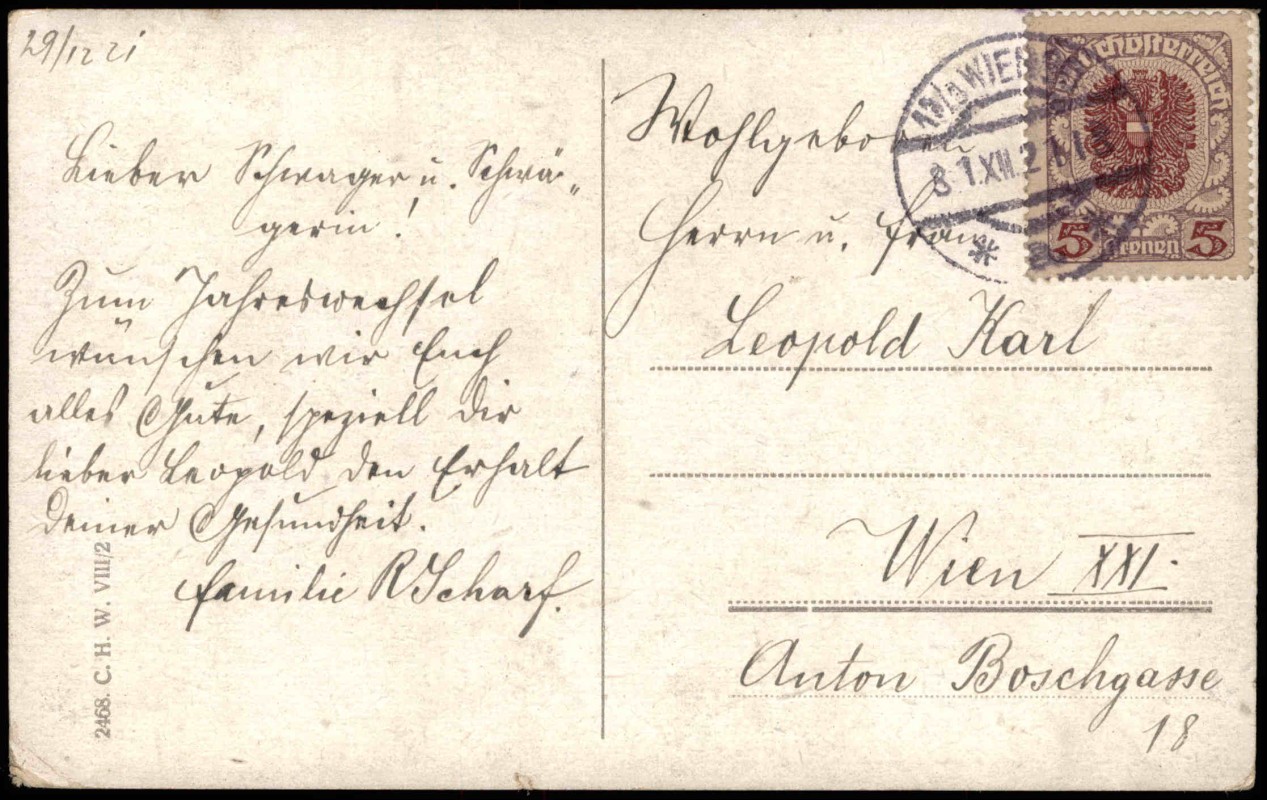 29/12 21
Lieber Schwager u. Schwä-
gerin!
Zum Jahreswechsel
wünschen wir Euch
alles Gute, speziell Dir
lieber Leopold den Erhalt
Deiner Gesundheit.
Familie R Scharf.
2468. C. H. W. VIII/2
WIEN
31.XII.21
Deutschösterreich
5 Kronen 5
Wohlgeboren
Herrn u. Frau
Leopold Karl
Wien XXI.
Anton Boschgasse
18